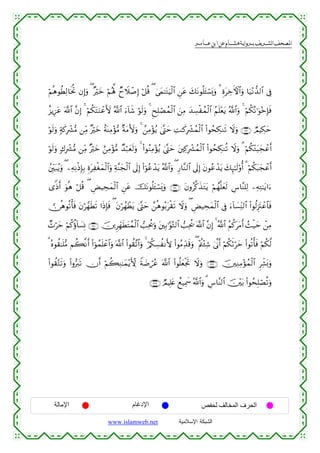 المصحف الشريف برواية هشام عن ابن عامر
فِى ٱلدُّنْيَا وَٱلْأَخِرَةِ وَيَسْـَٔلُونَكَ عَنِ ٱلْيَتَٰمَىٰ قُلْ إِصْلَاحٌ لَّهُمْ خَيْرٌ وَإِن تُخَالِطُوهُمْ
فَإِخْوَٰنُكُمْ وَٱللَّهُ يَعْلَمُ ٱلْمُفْسِدَ مِنَ ٱلْمُصْلِحِ وَلَوْ شَآءَ ٱللَّهُ لَأَعْنَتَكُمْ إِنَّ ٱللَّهَ عَزِيزٌ
حَكِيمٌ وَلَا تَنكِحُوا۟ ٱلْمُشْرِكَٰتِ حَتَّىٰ يُؤْمِنَّ وَلَأَمَةٌ مُّؤْمِنَةٌ خَيْرٌ مِّن مُّشْرِكَةٍ وَلَوْ
أَعْجَبَتْكُمْ وَلَا تُنكِحُوا۟ ٱلْمُشْرِكِينَ حَتَّىٰ يُؤْمِنُوا۟ وَلَعَبْدٌ مُّؤْمِنٌ خَيْرٌ مِّن مُّشْرِكٍ وَلَوْ
أَعْجَبَكُمْ أُو۟لَٰٓئِكَ يَدْعُونَ إِلَى ٱلنَّارِ وَٱللَّهُ يَدْعُوٓا۟ إِلَى ٱلْجَنَّةِ وَٱلْمَغْفِرَةِ بِإِذْنِهِۦ وَيُبَيِّنُ
ءَايَٰتِهِۦ لِلنَّاسِ لَعَلَّهُمْ يَتَذَكَّرُونَ وَيَسْـَٔلُونَكَ عَنِ ٱلْمَحِيضِ قُلْ هُوَ أَذًى
فَٱعْتَزِلُوا۟ ٱلنِّسَآءَ فِى ٱلْمَحِيضِ وَلَا تَقْرَبُوهُنَّ حَتَّىٰ يَطْهُرْنَ فَإِذَا تَطَهَّرْنَ فَأْتُوهُنَّ
مِنْ حَيْثُ أَمَرَكُمُ ٱللَّهُ إِنَّ ٱللَّهَ يُحِبُّ ٱلتَّوَّٰبِينَ وَيُحِبُّ ٱلْمُتَطَهِّرِينَ نِسَآؤُكُمْ حَرْثٌ
لَّكُمْ فَأْتُوا۟ حَرْثَكُمْ أَنَّىٰ شِئْتُمْ وَقَدِّمُوا۟ لِأَنفُسِكُمْ وَٱتَّقُوا۟ ٱللَّهَ وَٱعْلَمُوٓا۟ أَنَّكُم مُّلَٰقُوهُ
وَبَشِّرِ ٱلْمُؤْمِنِينَ وَلَا تَجْعَلُوا۟ ٱللَّهَ عُرْضَةً لِّأَيْمَٰنِكُمْ أَن تَبَرُّوا۟ وَتَتَّقُوا۟
وَتُصْلِحُوا۟ بَيْنَ ٱلنَّاسِ وَٱللَّهُ سَمِيعٌ عَلِيمٌ
الحرف المخالف لحفص الإدغام الإمالة
الشبكة الإسلامية www.islamweb.net